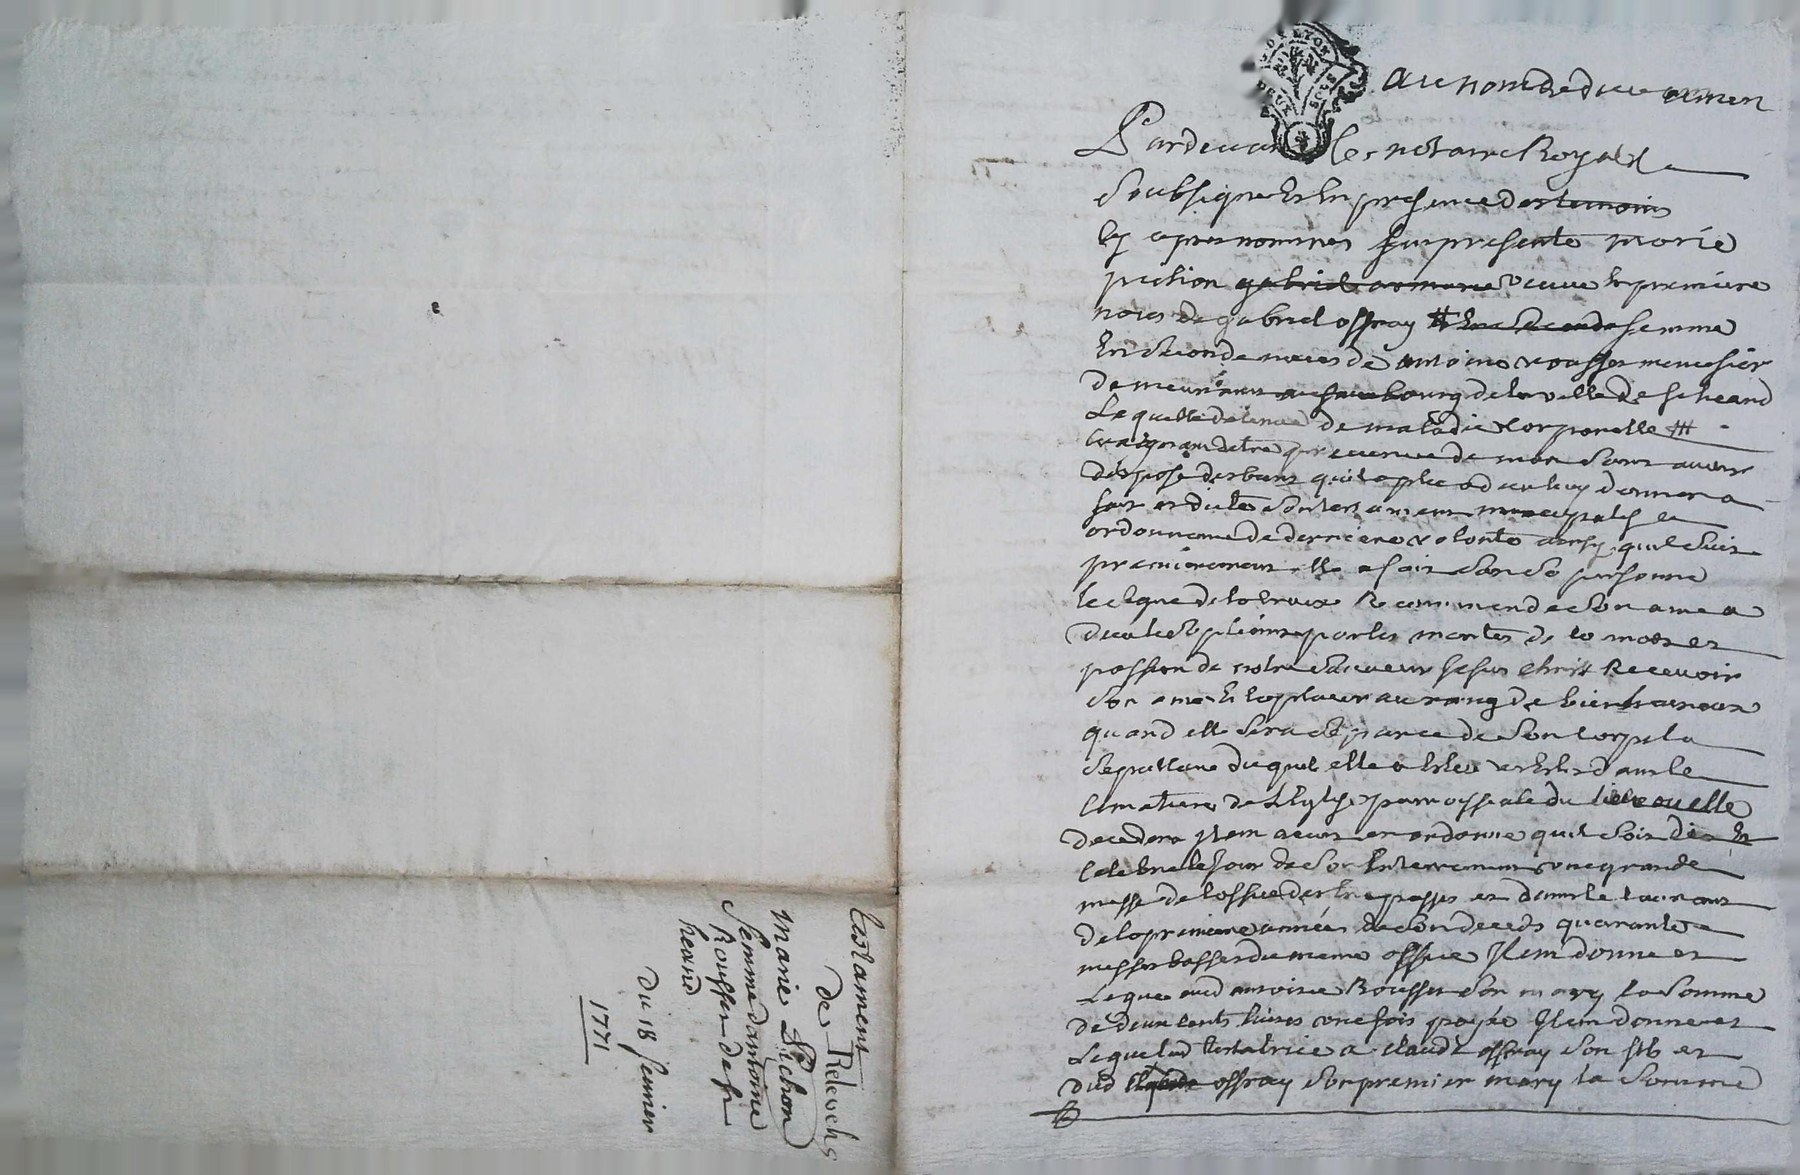 testament
de Relevé
marie Pichon
femme dantoine
Rousset de St
heand
Du 18 Jenvier
1771
au nom de dieu amen
Pardevant le notaire Royal
Soubsigné Et En presence des temoins
cy apres nommes fut presente marie
pichon gabriel veuve En premiere
noces de gabriel offray # En Seconde femme
En Seconde noces de antoine rousset menusier
demeurant au faubourg de la ville de St heand
Laquelle detenue de maladie corporelle #
craignant detre prevenue de mort sans avoir
dispose des biens quil a plu a dieu luy donner a
fait et dicté son testament nuncupatif et
ordonnance de derniere volonté ainsy quil suit
premierement elle a fait sur sa personne
le signe de la croix Recommende son ame a
dieu le supliant par les merites de la mort et
passion de notre sauveur Jesus Christ Recevoir
son ame Et la placer au rang de bienheureux
quand elle sera separee de son corps la
sepulture duquel elle a Eslu dans le
cimetiere de L'Eglise parroissiale du lieu ou elle
decedera Item veut et ordonne quil soit dit Et
celebré le jour de son Enterrement une grande
messe de loffice des trepassés et dans le courant
de la premiere année de son deceds quarante
messes basses du meme office Item donne et
legue aud antoine Rousset son mary la somme
de deux cents livres une fois payée Item donne et
legue lad testatrice a claude offray son fils et
dud offray son premier mary la somme